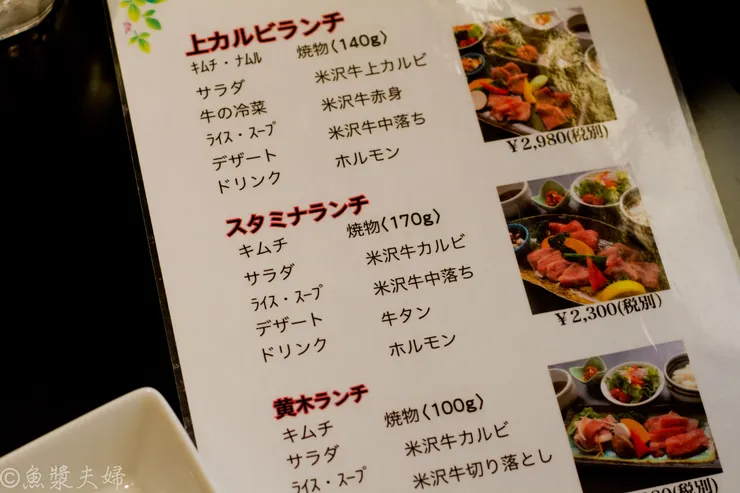 上カルビランチ
キムチ・ナムル
サラダ
牛の冷菜
ライス・スープ
デザート
ドリンク
焼物(140g)
米沢牛上カルビ
米沢牛赤身
米沢牛中落ち
ホルモン
¥2,980(税別)
スタミナランチ
キムチ
サラダ
ライス・スープ
デザート
ドリンク
焼物(170g)
米沢牛カルビ
米沢牛中落ち
牛タン
ホルモン
¥2,300(税別)
黄木ランチ
キムチ
サラダ
ライス・スープ
焼物(100g)
米沢牛カルビ
米沢牛切り落とし
税別)
©魚漿夫婦